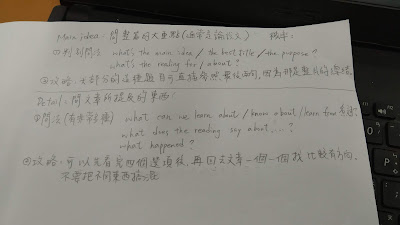 Main idea: 問整篇的大重點(通常是論說文) 機率:
①判別問法 what's the main idea / the best title / the purpose?
what's the reading for / about?
②攻略:大部分的這種題目可直接參照最後面句,因為那是整段的總結.
Detail: 問文章所提及的東西:
①問法(有非常多種) what can we learn about / know about / learn from
what does the reading say about...?
what happened?
②攻略:可以先看完四個選項後,再回去文章一個一個找 比較有方向,
不要把不同東西搞混